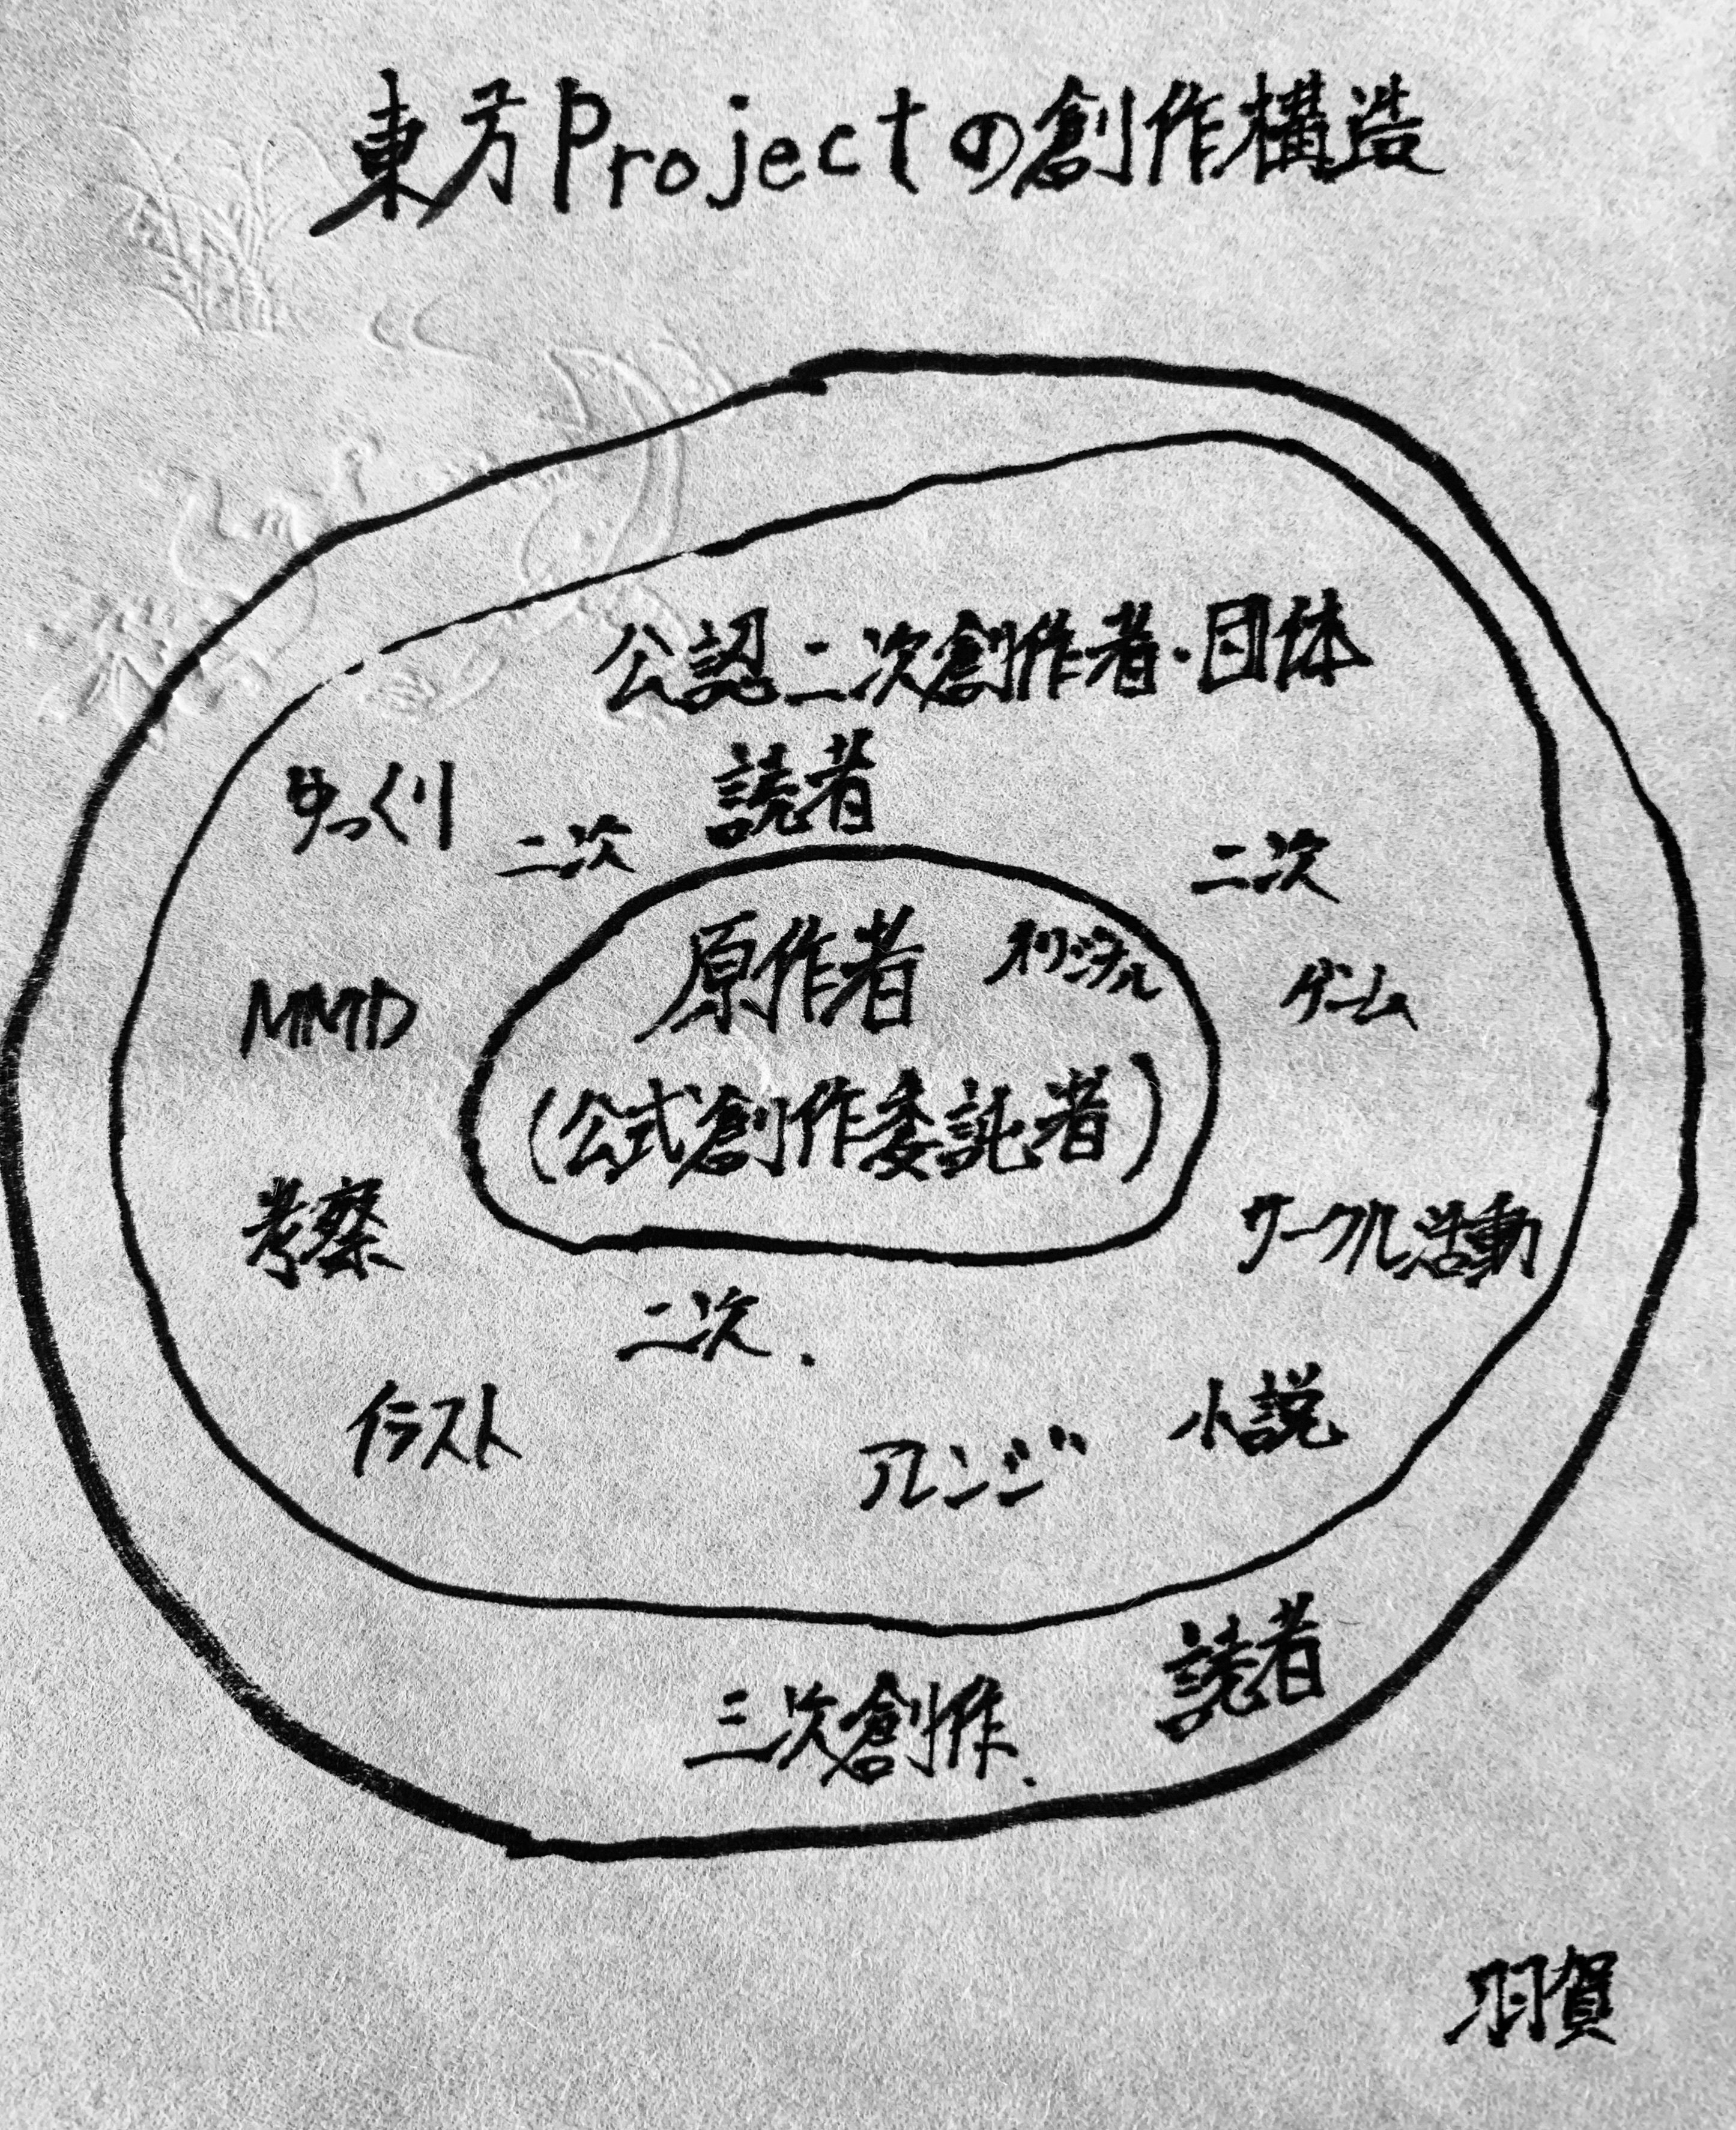 東方Projectの創作構造
公認二次創作者・団体
ゆっくり
二次
読者
二次
原作者
オリジナル
MMD
ゲーム
(公式創作委託者)
考察
サークル活動
二次.
イラスト
アレンジ
小説
三次創作.
読者
羽賀